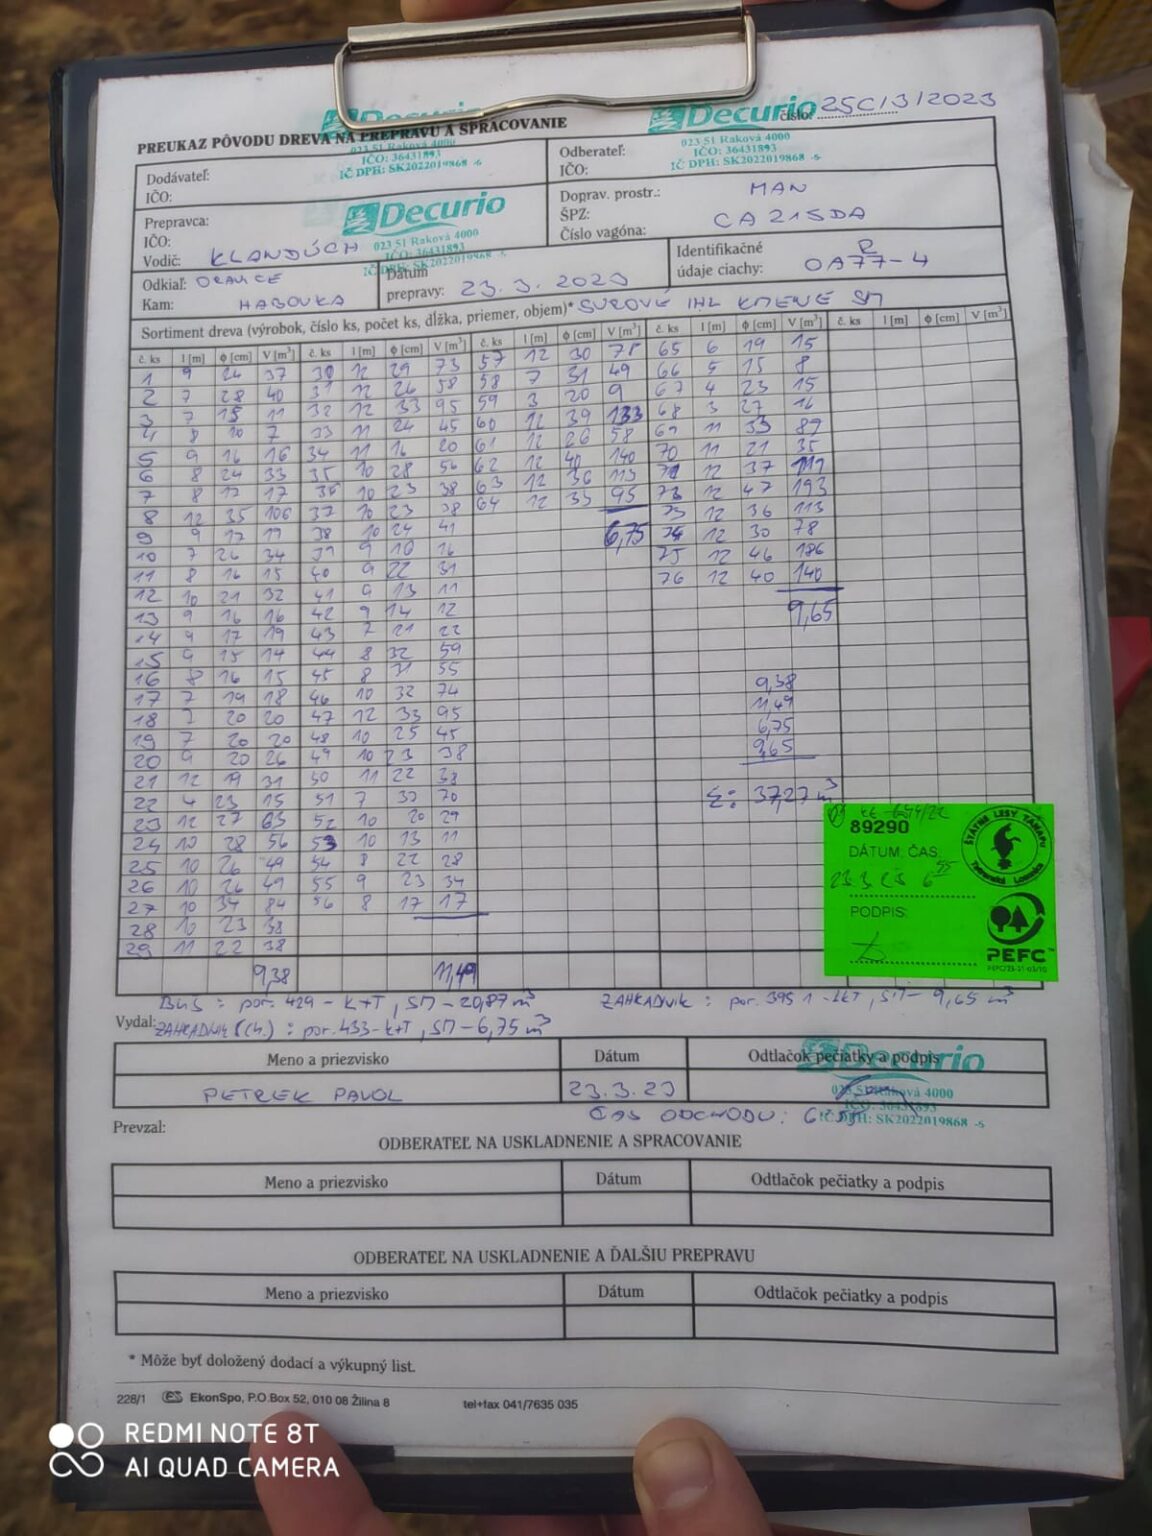 Decurio
Decurio číslo: 25C/3/2023
PREUKAZ PÔVODU DREVA NA PREPRAVU A SPRACOVANIE
023 51 Raková 4000
IČO: 36431893
IČ DPH: SK2022019868 -5
023 51 Raková 4000
IČO: 36431893
IČ DPH: SK2022019868 -5
Dodávateľ:
IČO:
Odberateľ:
IČO:
Prepravca:
IČO:
Vodič: KLANDÚCH
Decurio
023 51 Raková 4000
IČO: 36431893
IČ DPH: SK2022019868 -5
Doprav. prostr.: MAN
ŠPZ: CA215DA
Číslo vagóna:
Odkiaľ: ORAVICE
Kam: HABOVKA
Dátum
prepravy: 23. 3. 2023
Identifikačné
údaje ciachy: R
OA77-4
Sortiment dreva (výrobok, číslo ks, počet ks, dĺžka, priemer, objem)* SUROVÉ IHL KMENE SM
č. ks l [m] ϕ [cm] V [m³] č. ks l [m] ϕ [cm] V [m³] č. ks l [m] ϕ [cm] V [m³] č. ks l [m] ϕ [cm] V [m³] č. ks l [m] ϕ [cm] V [m³]
1 9 24 37 30 12 29 73 57 12 30 78 65 6 19 15
2 7 28 40 31 12 26 58 58 7 31 49 66 5 15 8
3 7 15 11 32 12 33 95 59 3 20 9 67 4 23 15
4 8 10 7 33 11 24 45 60 12 39 133 68 3 27 16
5 9 16 16 34 11 16 20 61 12 26 58 69 11 33 89
6 8 24 33 35 10 28 56 62 12 40 140 70 11 21 35
7 8 17 17 36 10 23 38 63 12 36 113 71 12 37 119
8 12 35 106 37 10 23 38 64 12 33 95 72 12 47 193
9 9 17 19 38 10 24 41 6,75 73 12 36 113
10 7 26 34 39 9 16 16 74 12 30 78
11 8 16 15 40 9 22 31 75 12 46 186
12 10 21 32 41 9 13 11 76 12 40 140
13 9 16 16 42 9 14 12 9,65
14 9 17 19 43 7 21 22
15 9 15 14 44 8 32 59
16 8 16 15 45 8 31 55
17 7 19 18 46 10 32 74 9,38
18 7 20 20 47 12 33 95 11,49
19 7 20 20 48 10 25 45 6,75
20 9 20 26 49 10 23 38 9,65
21 12 19 31 50 11 22 38
22 4 23 15 51 7 37 70 Σ: 37,27 m³
23 12 27 63 52 10 20 29
24 10 28 56 53 10 13 11
25 10 26 49 54 8 22 28
26 10 26 49 55 9 23 34
27 10 34 84 56 8 17 17
28 10 23 38
29 11 22 38
9,38 11,49
89290
DÁTUM, ČAS:
23 3 23 6 55
PODPIS:
ŠTÁTNE LESY TANAPU
Tatranská Lomnica
PEFC™
BUS : por. 429 - K+T, SM - 20,87 m³ ZAHRADNIK : por. 395 1 - LKT, SM - 9,65 m³
Vydal: ZAHRADNIK (Ch.) : por. 433 - K+T, SM - 6,75 m³
Meno a priezvisko Dátum Odtlačok pečiatky a podpis
PETREK PAVOL 23.3.23
Decurio
023 51 Raková 4000
IČO: 36431893
IČ DPH: SK2022019868 -5
ČAS ODCHODU: 6 55
Prevzal:
ODBERATEĽ NA USKLADNENIE A SPRACOVANIE
Meno a priezvisko Dátum Odtlačok pečiatky a podpis
ODBERATEĽ NA USKLADNENIE A ĎALŠIU PREPRAVU
Meno a priezvisko Dátum Odtlačok pečiatky a podpis
* Môže byť doložený dodací a výkupný list.
228/1 ES EkonSpo, P.O.Box 52, 010 08 Žilina 8 tel+fax 041/7635 035
REDMI NOTE 8T
AI QUAD CAMERA